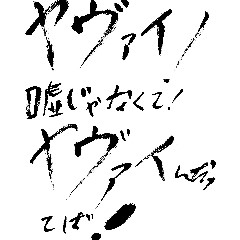 ヤヴァイ!
嘘じゃなくて!
ヤヴァイんだっ
てば!